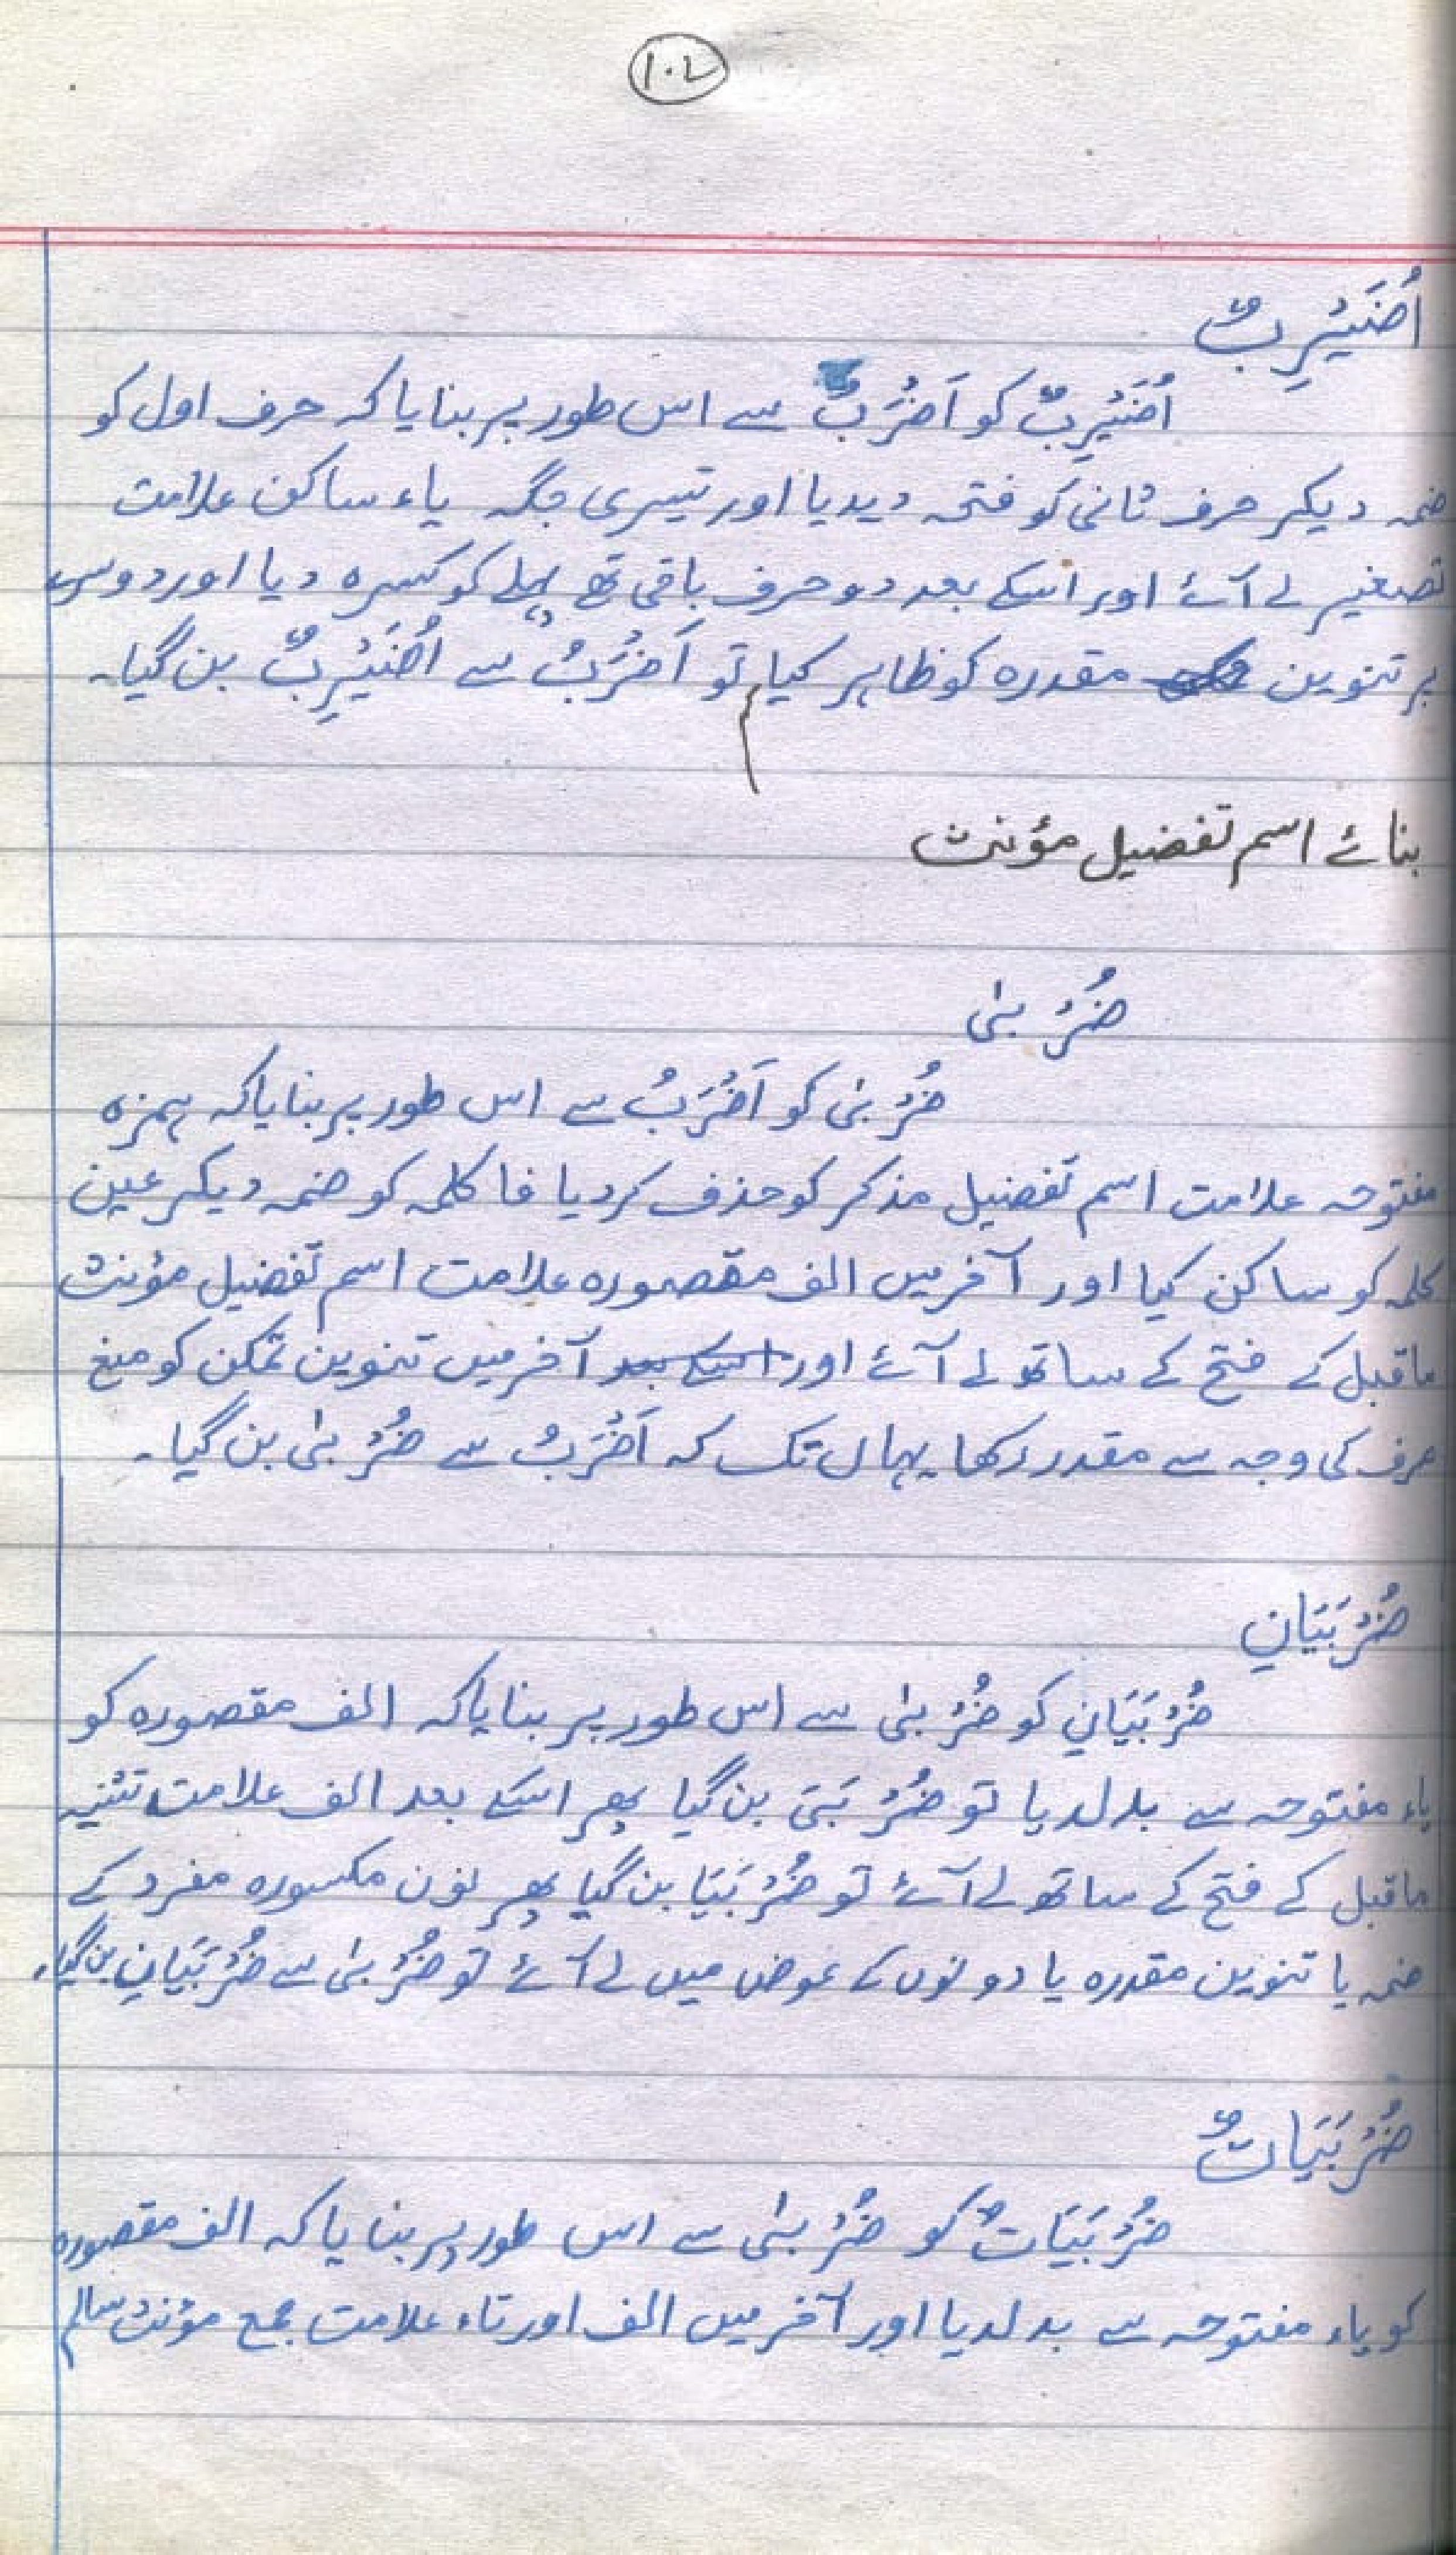 ۱۰۷
اُضَیْرِبٌ
اُضَیْرِبٌ کو اَضْرَبُ سے اس طور پر بنایا کہ حرف اول کو
ضمہ دیکر حرف ثانی کو فتحہ دیدیا اور تیسری جگہ یاء ساکن علامت
تصغیر لے آئے اور اسکے بعد دو حرف باقی تھے پہلے کو کسرہ دیا اور دوسرے
پر تنوین مقدرہ کو ظاہر کیا تو اَضْرَبُ سے اُضَیْرِبٌ بن گیا۔
بنائے اسم تفضیل مؤنث
ضُرْبٰی
ضُرْبٰی کو اَضْرَبُ سے اس طور پر بنایا کہ ہمزہ
مفتوحہ علامت اسم تفضیل مذکر کو حذف کردیا فا کلمہ کو ضمہ دیکر عین
کلمہ کو ساکن کیا اور آخر میں الف مقصورہ علامت اسم تفضیل مؤنث
ماقبل کے فتح کے ساتھ لے آئے اور اسکے بعد آخر میں تنوین تمکن کو منع
صرف کی وجہ سے مقدر رکھا یہاں تک کہ اَضْرَبُ سے ضُرْبٰی بن گیا۔
ضُرْبَیَانِ
ضُرْبَیَانِ کو ضُرْبٰی سے اس طور پر بنایا کہ الف مقصورہ کو
یاء مفتوحہ سے بدلدیا تو ضُرْبَیَ بن گیا پھر اسکے بعد الف علامت تثنیہ
ماقبل کے فتح کے ساتھ لے آئے تو ضُرْبَیَا بن گیا پھر نون مکسورہ مفرد کے
ضمہ یا تنوین مقدرہ یا دونوں کے عوض میں لے آئے تو ضُرْبٰی سے ضُرْبَیَانِ بن گیا۔
ضُرْبَیَاتٌ
ضُرْبَیَاتٌ کو ضُرْبٰی سے اس طور پر بنایا کہ الف مقصورہ
کو یاء مفتوحہ سے بدلدیا اور آخر میں الف اور تاء علامت جمع مؤنث سالم